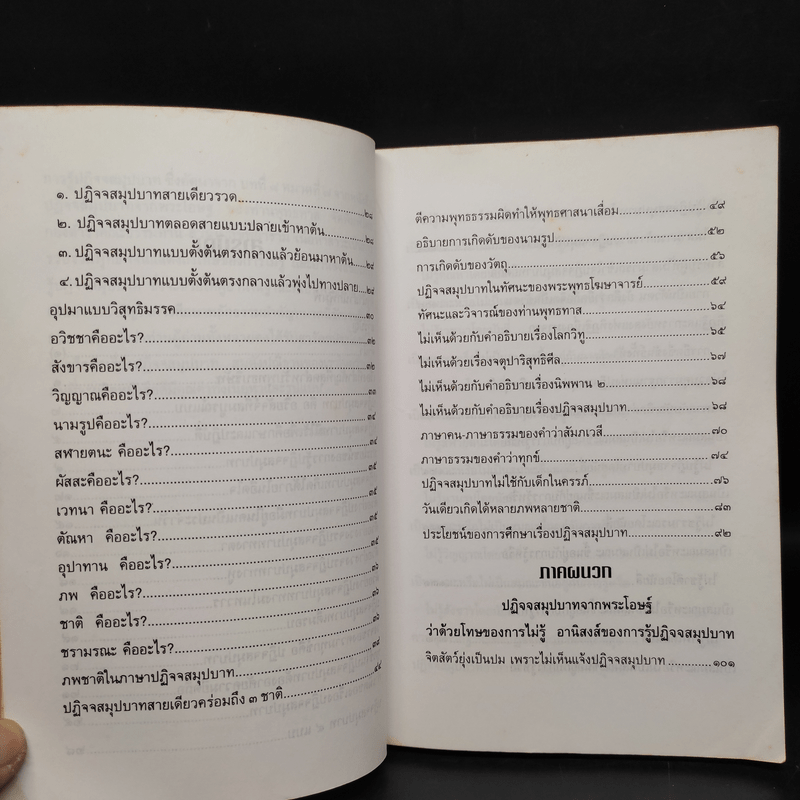 ๑. ปฏิจจสมุปบาทสายเดียวรวด....๒๘
๒. ปฏิจจสมุปบาทตลอดสายแบบปลายเข้าหาต้น....๒๘
๓. ปฏิจจสมุปบาทแบบตั้งต้นตรงกลางแล้วย้อนมาหาต้น....๒๙
๔. ปฏิจจสมุปบาทแบบตั้งต้นตรงกลางแล้วพุ่งไปทางปลาย....๒๙
อุปมาแบบวิสุทธิมรรค....๓๐
อวิชชาคืออะไร?....๓๒
สังขารคืออะไร?....๓๒
วิญญาณคืออะไร?....๓๓
นามรูปคืออะไร?....๓๔
สฬายตนะ คืออะไร?....๓๔
ผัสสะคืออะไร?....๓๕
เวทนา คืออะไร?....๓๕
ตัณหา คืออะไร?....๓๕
อุปาทาน คืออะไร?....๓๕
ภพ คืออะไร?....๓๖
ชาติ คืออะไร?....๓๖
ชรามรณะ คืออะไร?....๓๖
ภพชาติในภาษาปฏิจจสมุปบาท....๓๘
ปฏิจจสมุปบาทสายเดียวคร่อมถึง ๓ ชาติ....๔๔
ตีความพุทธธรรมผิดทำให้พุทธศาสนาเสื่อม....๔๙
อธิบายการเกิดดับของนามรูป....๕๒
การเกิดดับของวัตถุ....๕๖
ปฏิจจสมุปบาทในทัศนะของพระพุทธโฆษาจารย์....๕๙
ทัศนะและวิจารณ์ของท่านพุทธทาส....๖๔
ไม่เห็นด้วยกับคำอธิบายเรื่องโลกวิทู....๖๕
ไม่เห็นด้วยเรื่องจตุปาริสุทธิศีล....๖๗
ไม่เห็นด้วยกับคำอธิบายเรื่องนิพพาน ๒....๖๘
ไม่เห็นด้วยกับคำอธิบายเรื่องปฏิจจสมุปบาท....๖๘
ภาษาคน-ภาษาธรรมของคำว่าสัมภเวสี....๗๐
ภาษาธรรมของคำว่าทุกข์....๗๔
ปฏิจจสมุปบาทไม่ใช้กับเด็กในครรภ์....๗๖
วันเดียวเกิดได้หลายภพหลายชาติ....๘๓
ประโยชน์ของการศึกษาเรื่องปฏิจจสมุปบาท....๙๒
ภาคผนวก
ปฏิจจสมุปบาทจากพระโอษฐ์
ว่าด้วยโทษของการไม่รู้ อานิสงส์ของการรู้ปฏิจจสมุปบาท
จิตสัตว์ยุ่งเป็นปม เพราะไม่เห็นแจ้งปฏิจจสมุปบาท....๑๐๑